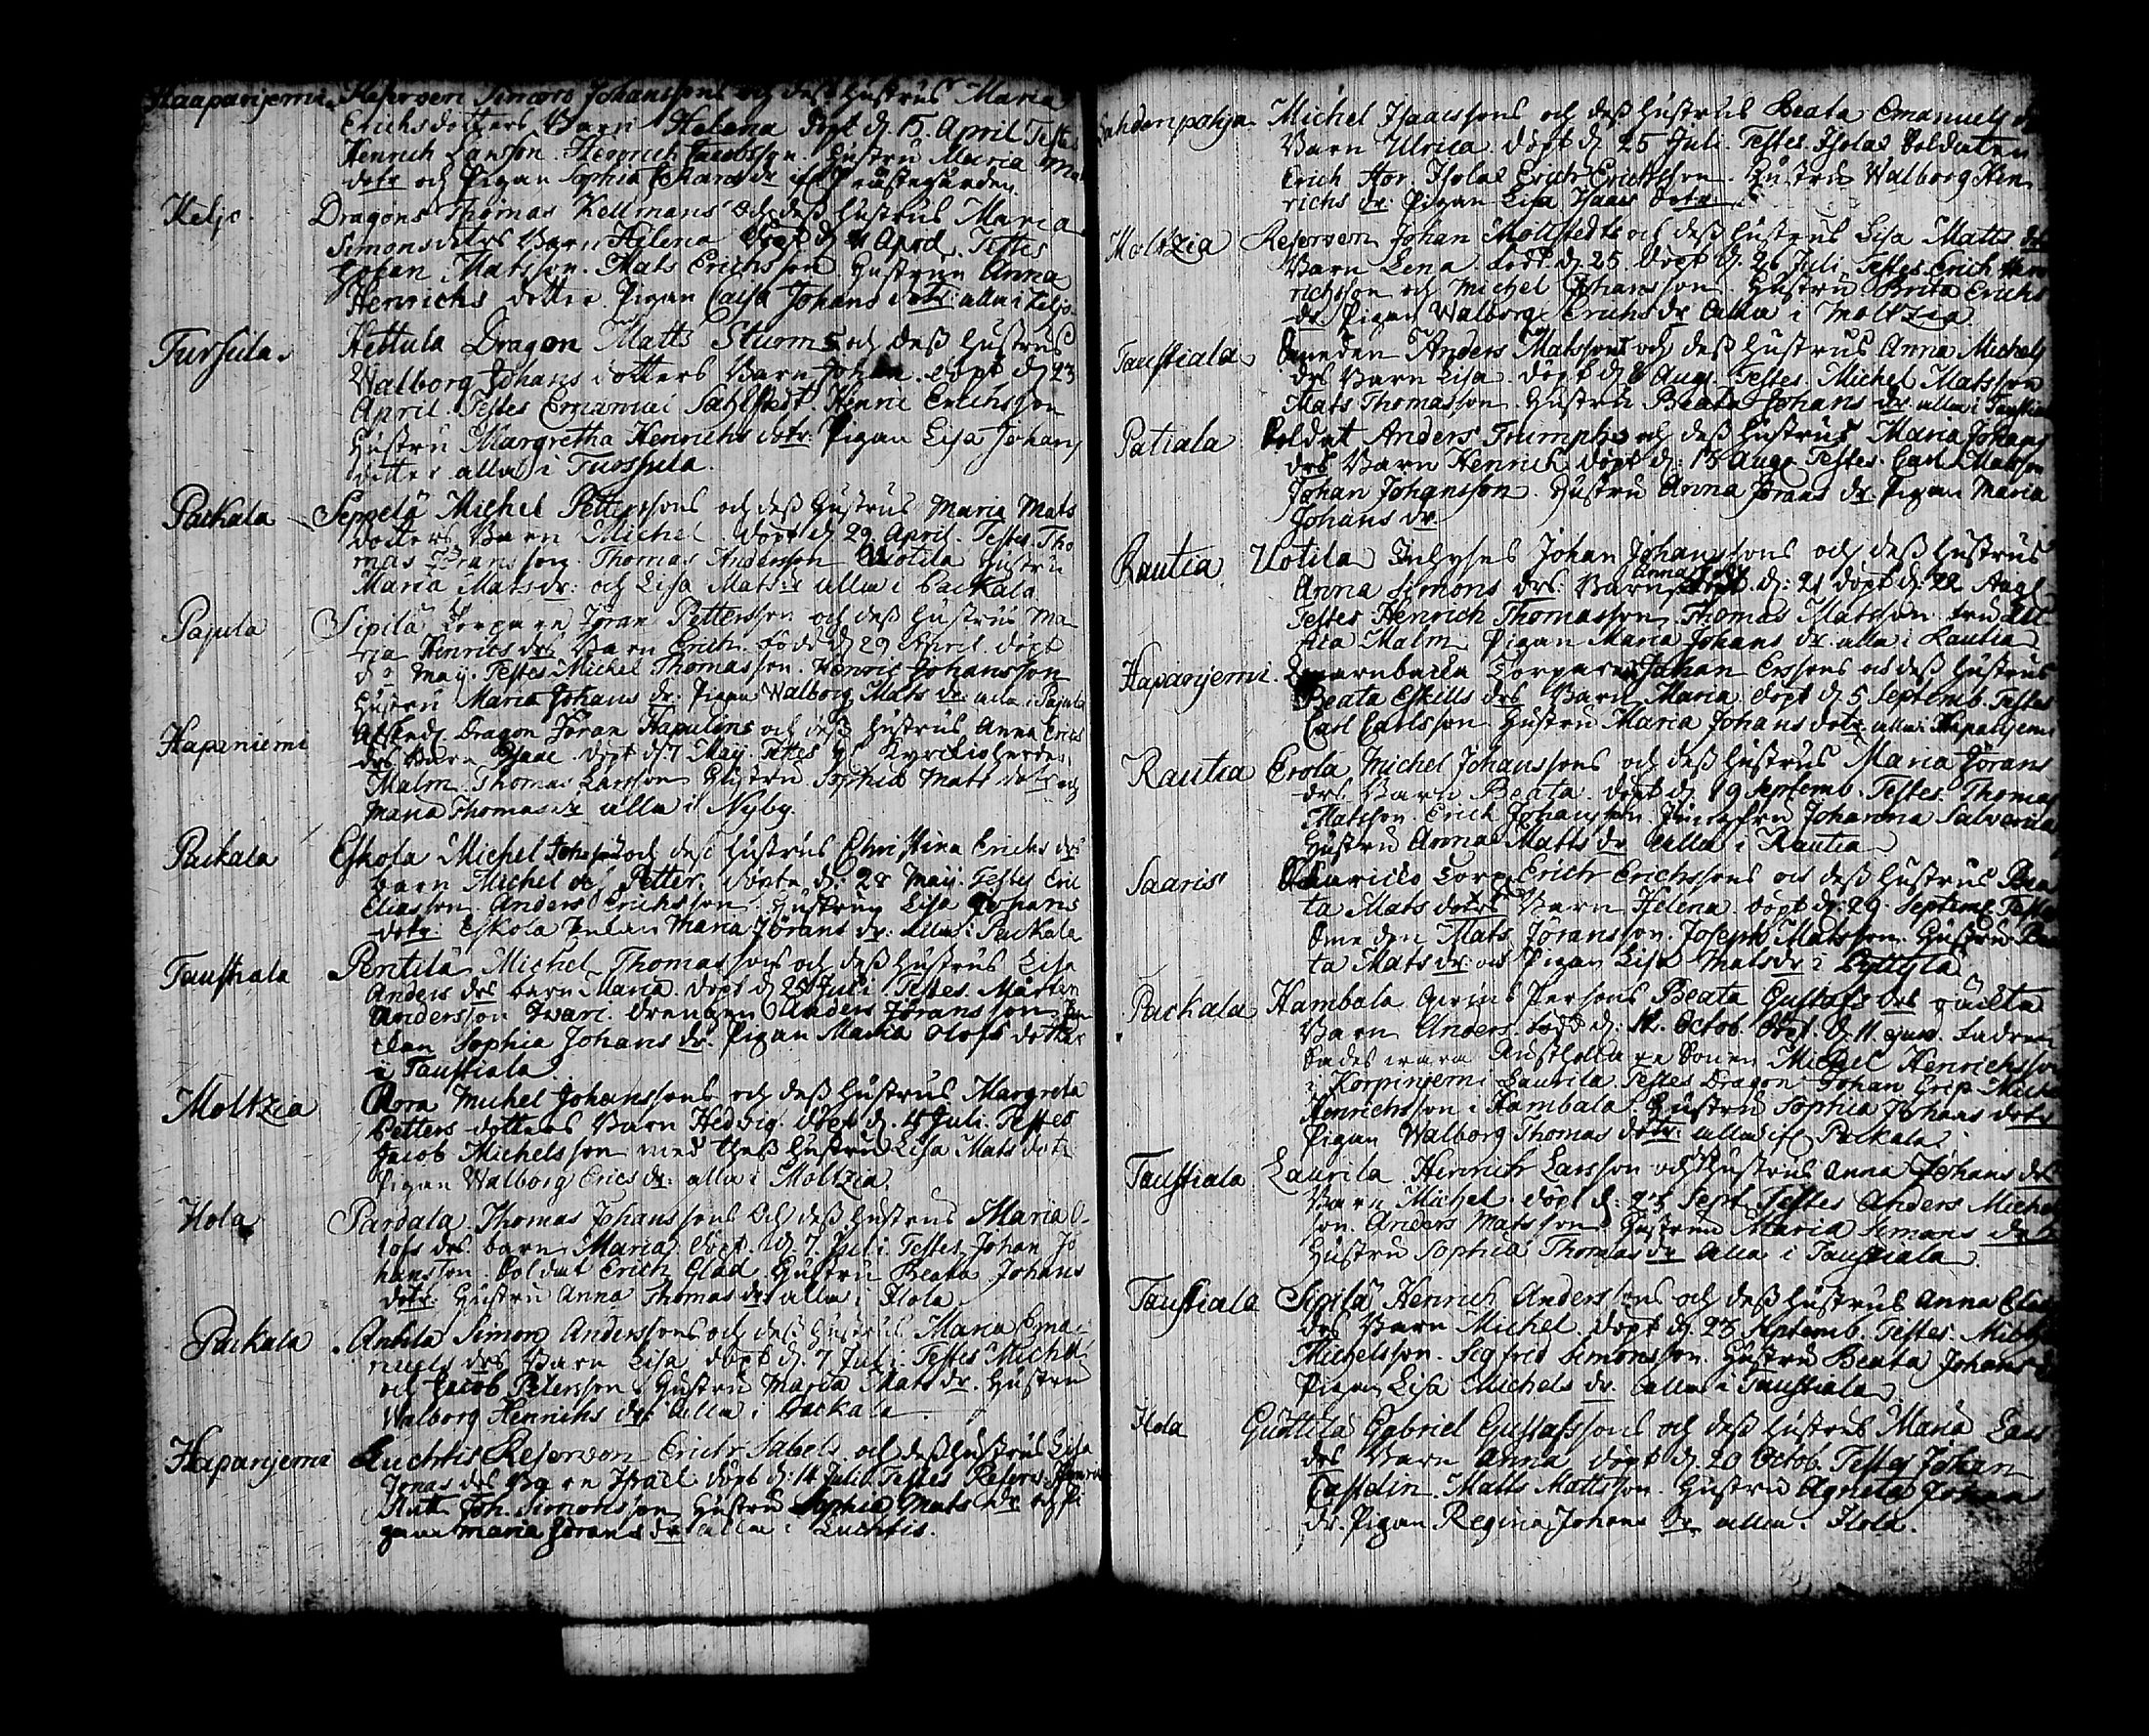 Haapanjemi Reserven Simons Johanssons och dess hustrus Maria
Erichsdotters Barn Helena döpt d. 15. April Testes
Henrich Larsson. Henrich Jacobsson. hustru Maria
dotr och Pigan Sophia dr
Keljo. Dragons Thomas Kellmans och dess hustrus Maria
Simonsdotrs Barn Helena döpt d April. Testes
Matsson. Mats Erichsson hustrun Anna
Henrichs dotter Pigan Caisa Johans dotr. alla i Keljo.
Tursula. Hettula Dragon Matts Sturms och dess hustrus
Walborg Johans dotters Barn Johan. döpt d 23
April. Testes Emanuel Sahlstedt. Henric Erichsson
hustru Margretha Henrichs dotr. Pigan Lisa Johans
dotter alla i Turssula.
Packala Seppelä Michel Petterssons och dess hustrus Maria Mats
dotters Barn Michel. döpt d 29. April. Testes. Tho
mas Jöransson. Thomas Andersson Uotila hustru
Maria Mats dr: och Lisa Mats dr alla i Packala
Pajula Sipilä Jöran Pettersson och dess hustrus Ma
ria Henrics drs Barn Erich. född d 29 April. döpt
d May. Testes Michel Thomasson. Henric Johansson
hustru Maria Johans dr: Pigan Walborg Mats dr: alla i Pajula
Hapaniemi Dragon Jöran Hapulins och dess hustrus Anna Erics
drs Barn Isaac döpt d. 7 May. Testes
Malm. Thomas Larsson hustru Sophia Mats dotr och
Maria Thomas dr alla i Nyby.
Packala Eskola Michel och dess hustrus Christina Erichs drs
barn Michel och Petter. döpta d: 28 Maij. Testes Eric
Eliasson. Anders Erichsson hustrun Lisa Johans
dotr: Eskola Maria Jörans dr: alla i Packala
Taustiala Pentilä Michel Thomassons och dess hustrus Lisa
Anders drs barn Maria. döpt d 25 Juli Testes. Mårten
Andersson drengen Anders Jöransson.
Sophia Johans dr. Pigan Maria Olofs dotter
i Taustiala
Moltzia Rora Michel Johanssons och dess hustrus Margreta
Petters dotters Barn Hedvig. döpt d. Juli. Testes
Jacob Michelsson med thess hustru Lisa Mats dotr
Pigan Walborg Erics dr: alla i Moltzia.
Hola Pardala. Thomas Johanssons och dess hustrus Maria O-
lofs drs. barn Maria. döpt. d. 7. Juli. Testes Johan Jo
hansson. Soldat Erich Glad. hustru Beata Johans
dotr: hustru Anna Thomas dr alla i Hola
Packala. Anhila Simon Anderssons och dess hustrus Maria Ema-
nuels drs Barn Lisa döpt d. 7 Juli. Testes Michel
och Jacob Petersson hustru Maria Mats dr. hustru
Walborg Henrichs dr alla i Packala
Hapanjemi Luchtis Reserven Erich Sabels och dess hustrus Lisa
Jonas drs Barn Israel döpt d: 14 Juli Testes
Joh. Simonsson hustru Sophia Mats dr och Pi
gan Maria Jörans dr alla i Luchtis.
Lahdenpohja Michel Isaacssons och dess hustrus Beata Emanuels
Barn Ulrica döpt d 25 Juli. Testes. Isolas Soldaten
Erich Isolas Erich Erichsson. hustru Walborg Hen
richs dr. Pigan Lisa Isaacs dotr
Moltzia Reserven Johan Mollstedts och dess hustrus Lisa Matts drs
Barn Lena. född d 25. döpt d. 26 Juli Testes. Erich Hen
richsson och Michel Johansson. hustru Brita Erichs
dr Pigan Walborg Erichs dr alla i Moltzia.
Taustiala Anders Matssons och dess hustrus Anna Michels
drs Barn Lisa. döpt d 8 Aug. Testes. Michel Matsson
Mats Thomasson. hustru Beata Johans dr alla i Taustiala
Patiala Soldat Anders Trumphs och dess hustrus Maria Johans
drs Barn Henrich döpt d: 18 Aug. Testes. Carl Matsson
Johan Johansson. hustru Anna Jörans dr Pigan Maria
Johans dr.
Rautia Uotila Inhyses Johan Johanssons och dess hustrus
Anna Simons drs. Barn Anna född d: 21 döpt d: 22 Aug.
Testes Henrich Thomasson Thomas Matsson
Malm. Pigan Maria Johans dr. alla i Rautia
Hapanjemi. Johan Erssons och dess hustrus
Beata Eskills drs Barn Maria döpt d 5 Septemb. Testes
Carl Carlsson hustru Maria Johans dotr alla i Hapanjemi
Rautia Erola Michel Johanssons och dess hustrus Maria Jörans
drs. Barn Beata. döpt d 19 Septemb. Testes. Thomas
Matsson. Erich Johansson Jungfru Johanna
hustru Anna Matts dr alla i Rautia
Saaris Erich Erichssons och dess hustrus Bea
ta Mats dotrs Barn Helena. döpt d: 29 Septemb Testes
Mats Jöransson. Joseph Matsson. hustru
ta Mats dr och Pigan Lisa Mats dr i Pyttylä
Packala Hambala Persons Beata Gustafs drs oächta
Barn Anders. född d: Octob. döpt. d. 11 ejusd. Fadren
sades wara Rusthollare Sonen Michel Henrichsson
i Korpinjemi Laurila. Testes Dragon Johan
Henrichsson i Hambala. hustru Sophia Johans dotr
Pigan Walborg Thomas dotr. alla ifr Packala.
Taustiala Laurila. Henrich Larsson och hustrus Anna Johans drs
Barn Michel. döpt d. Sept. Testes Anders Michels
son. Anders Matsson hustrun Maria Simons dr
hustru Sophia Thomas dr alla i Taustiala.
Taustiala Sipilä Henrich Anderssons och dess hustrus Anna
drs Barn Michel. döpt d. 28 Septemb. Testes.
Michelsson. Sigfred Simonsson. hustru Beata Johans
Pigan Lisa Michels dr. alla i Taustiala
Hola Guttila Gabriel Gustafssons och dess hustrus Maria Lars
drs Barn Anna döpt d. 20 Octob. Testes Johan
Castelin. Matts Mattsson. hustru Agneta Johans
dr. Pigan Regina Johans dr alla i Hola.